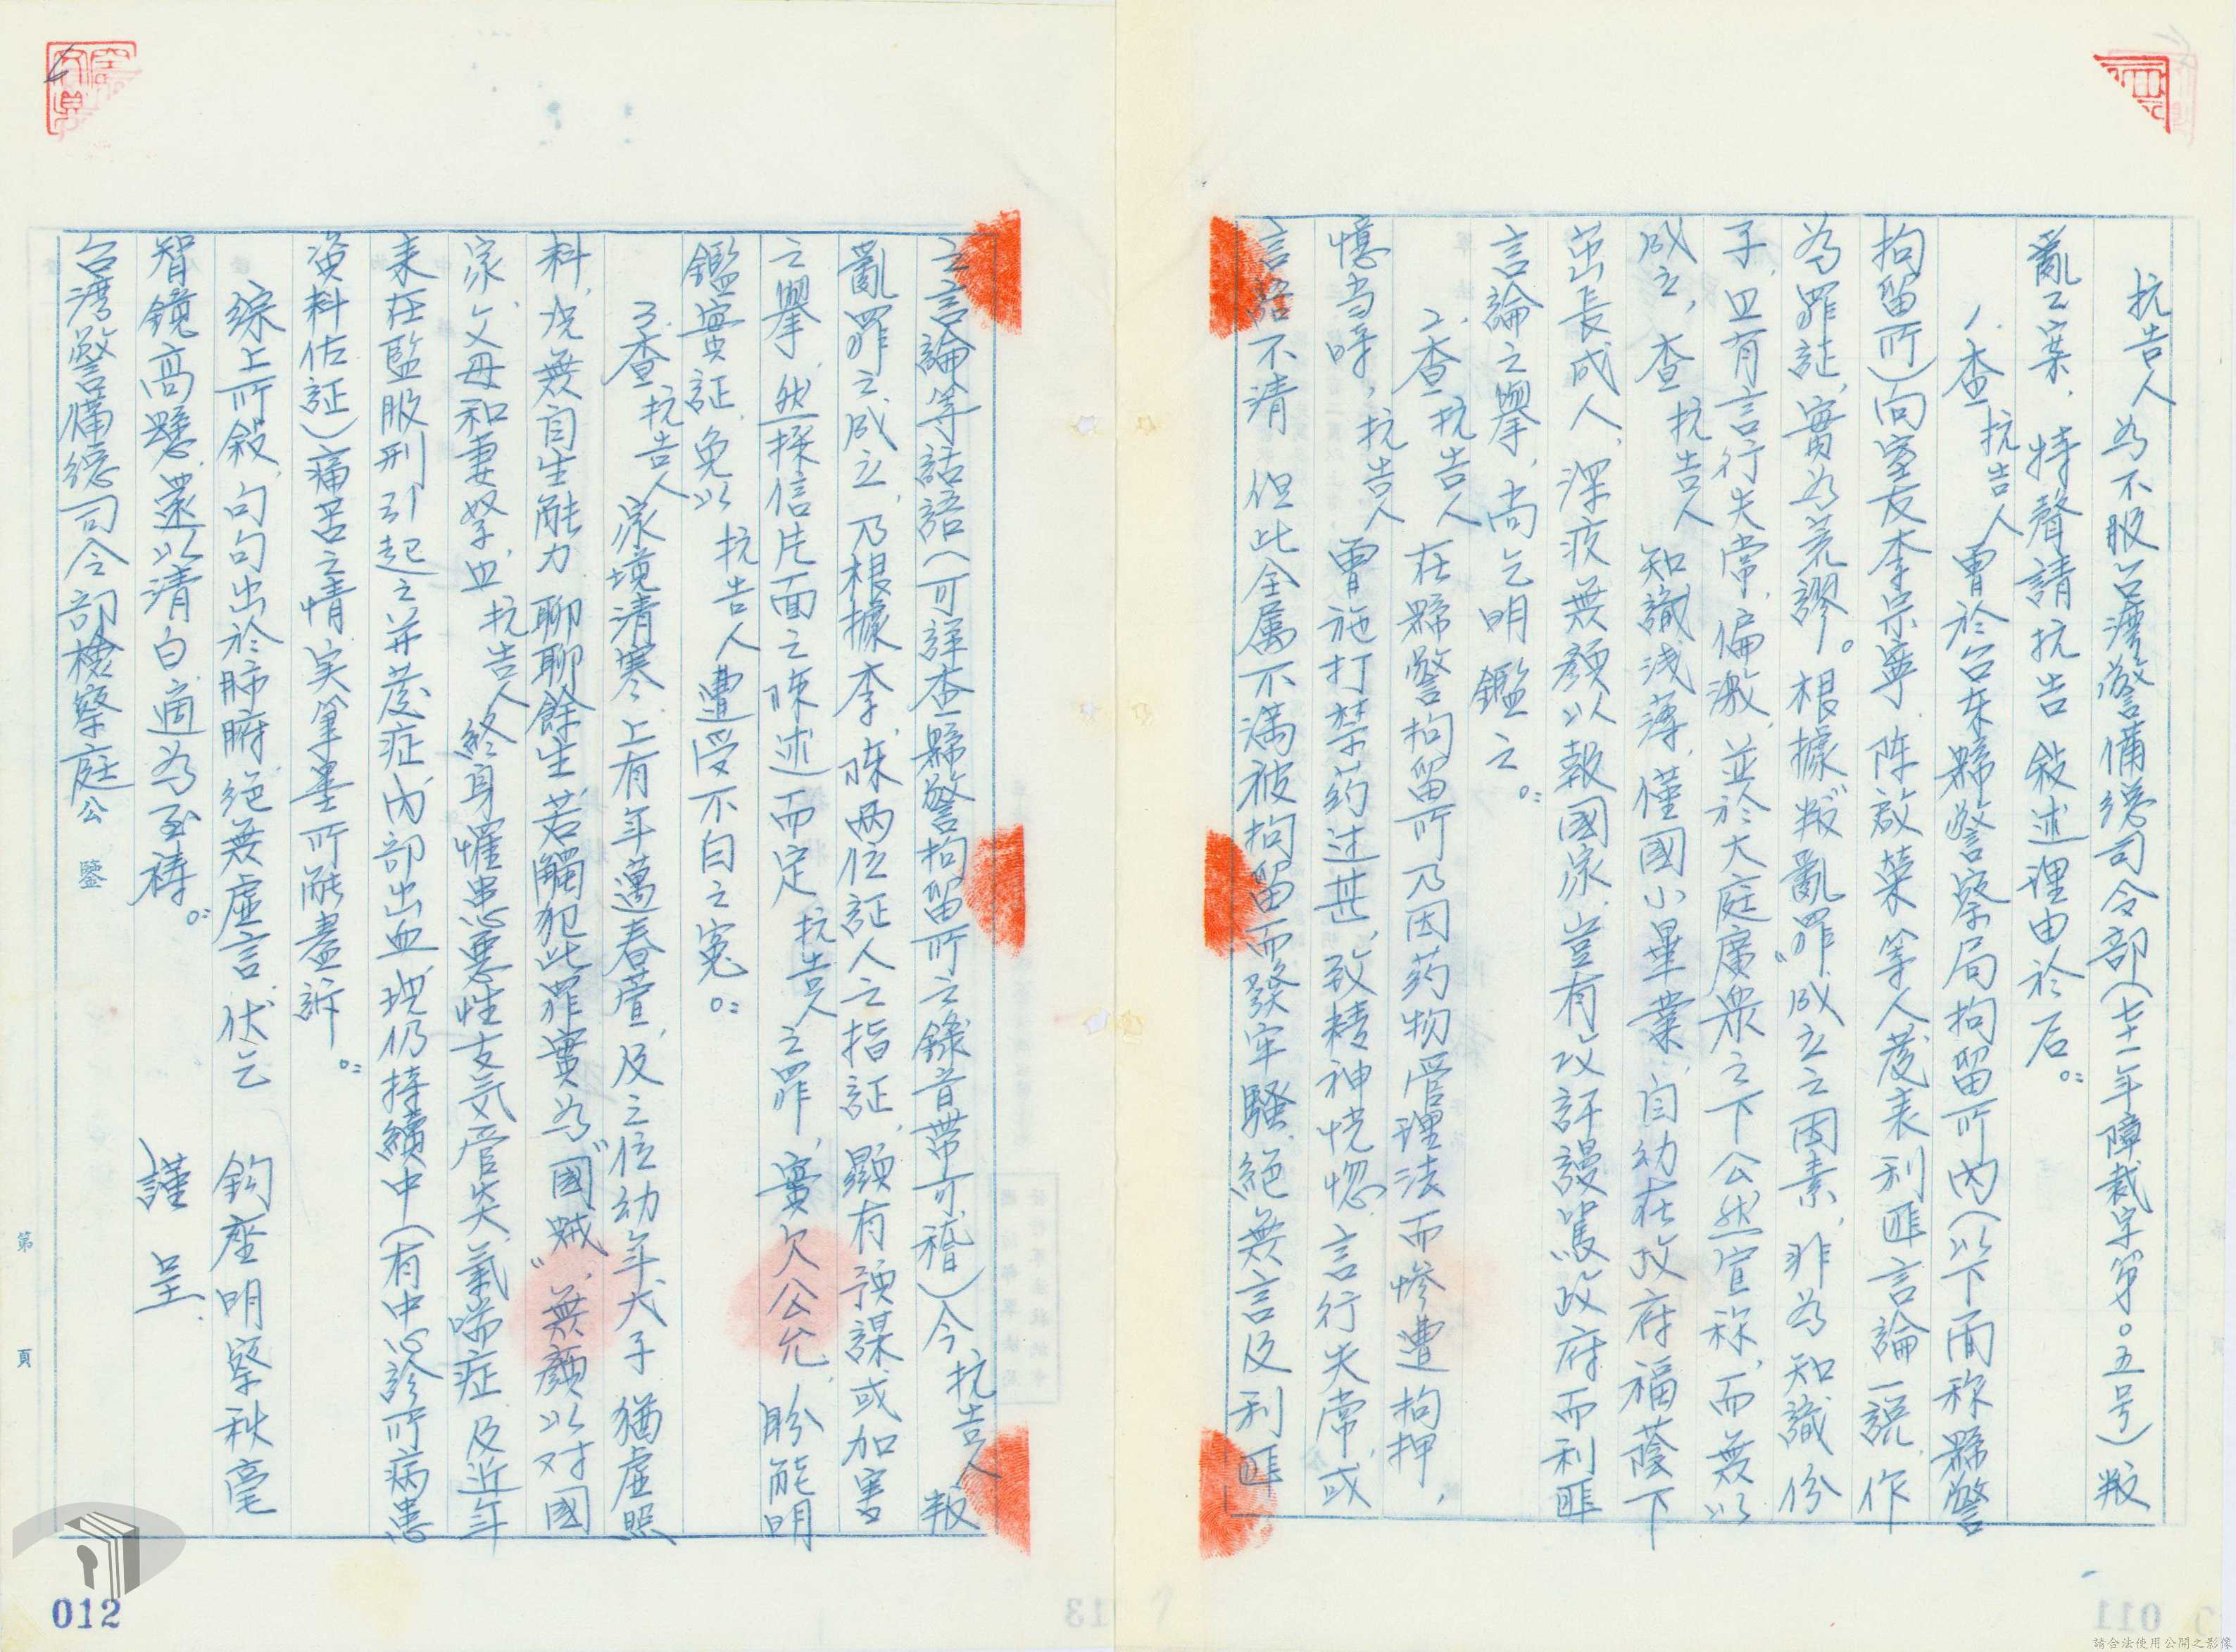 抗告人為不服台灣警備總司令部（七十一年障裁字第〇五号）叛
亂乙案，特聲請抗告敍述理由於后。
1.查抗告人曾於台东縣警察局拘留所內（以下面称縣警
拘留所）向室友李宗寧、陈啟荣等人发表利匪言論一說，作
為罪証，實為荒謬。根據"叛亂罪"成立之因素，非為知識份
子，且有言行失常，偏激，並於大庭廣眾之下公然宣称，而無以
成立，查抗告人知識浅薄，僅國小畢業，自幼在政府福蔭下
茁長成人，深疚無顏以報國家，豈有攻訐謾駡政府而利匪
言論之舉，尚乞明鑑之。
2.查抗告人在縣警拘留所乃因药物管理法而慘遭拘押，
憶当時，抗告人曾施打禁药过甚，致精神恍惚，言行失常，或
言語不清，但此全属不滿被拘留而發牢騷，絕無言及利匪
之言論等話語（可詳查縣警拘留所之錄音帶可稽）今抗告人叛
亂罪之成立，乃根據李、陈两位証人之指証，顯有預謀或加害
之舉，然採信片面之陈述而定抗告人之罪，實欠公允，盼能明
鑑實証，免以抗告人遭受不白之寃。
3.查抗告人家境清寒，上有年邁春萱，及之位幼年犬子猶虛照
料，况無自生能力，聊聊餘生，若觸犯此罪實為"國贼"，無顏以对國
家、父母和妻孥，且抗告人終身罹患惡性支気管炎、氣喘症，及近年
来在監服刑引起之并发症，內部出血，現仍持續中（有中心診所病患
資料佐証）痛苦之情，实筆墨所能盡訴。
綜上所敍，句句出於肺腑，絕無虛言，伏乞　鈞座明察秋毫
智鏡高懸，還以清白，適為至禱。　謹呈
台灣警備總司令部檢察庭公　鑒
第　頁
012
011
請合法使用公開之影像